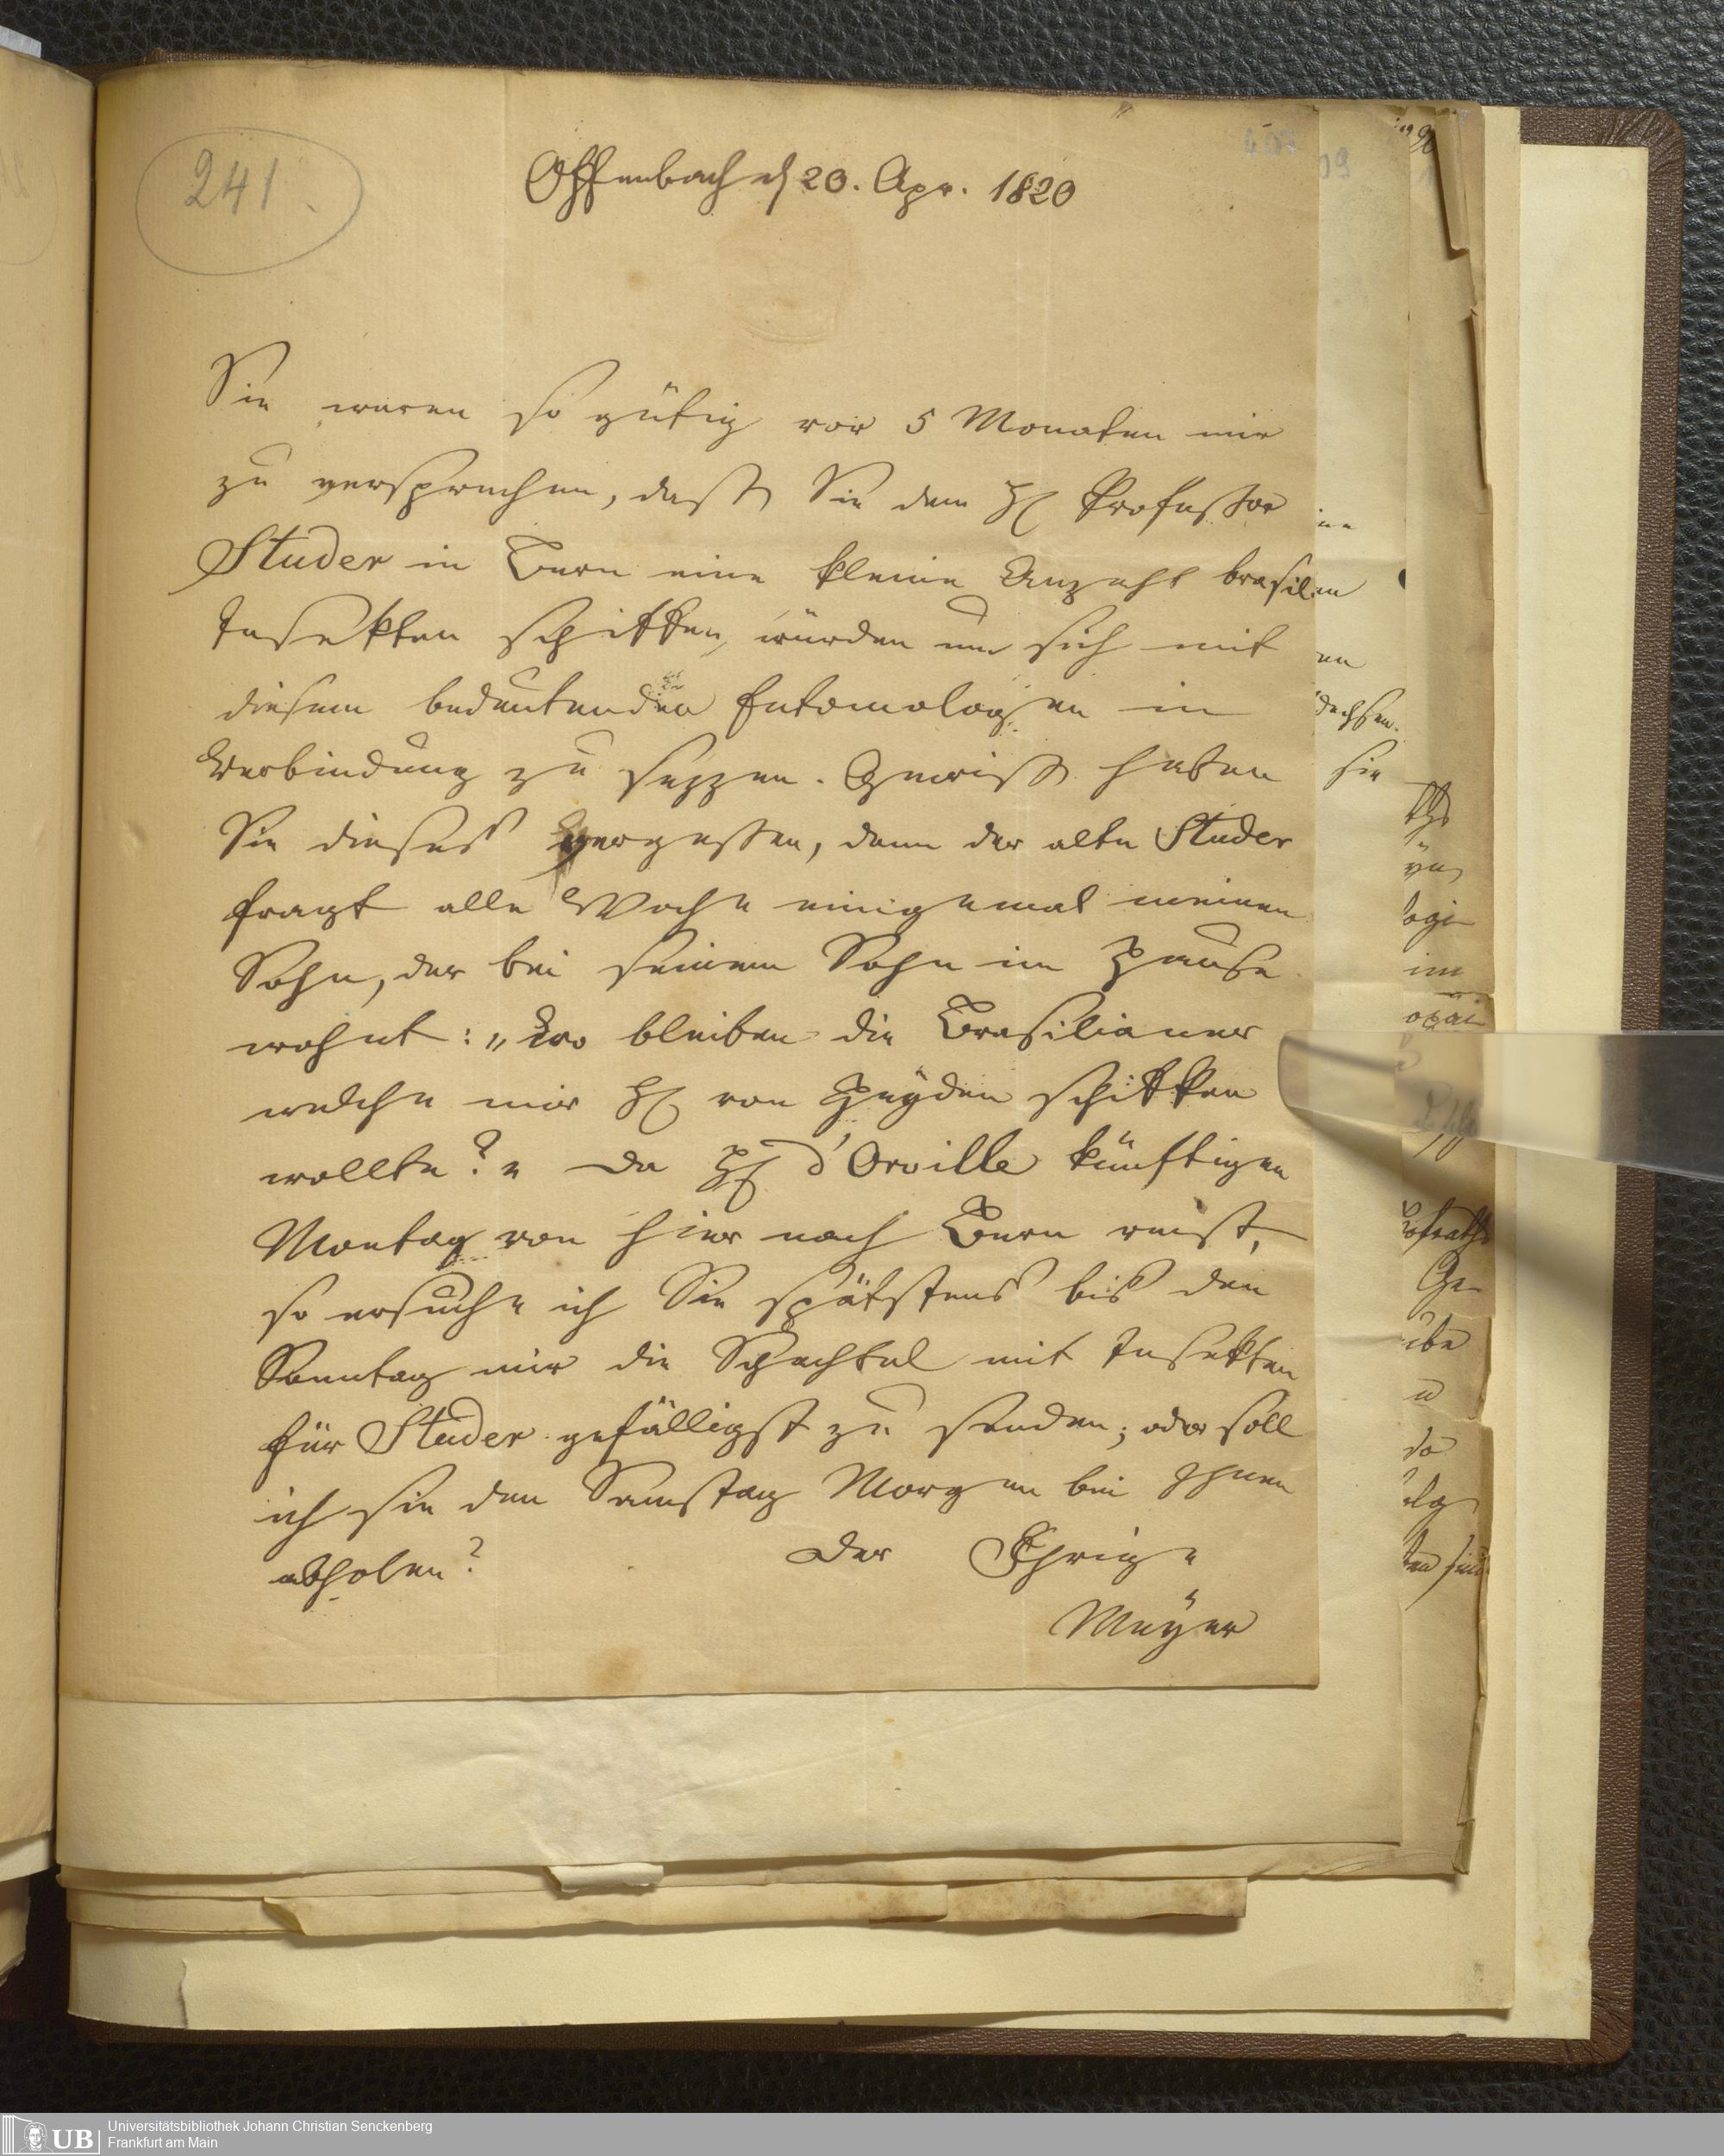 241.
Offenbach d 20. Apr. 1820
Sie waren so gütig vor 5 Monaten mir
zu versprechen, dass Sie dem H Professor
Studer in Bern eine kleine Anzahl brasil
Insekten schikken würden um sich mit
diesem bedeutenden Entomologen in
Verbindung zu sezzen. Gewiss haben
Sie dieses vergessen, denn der alte Studer
fragt alle Woche einigemal meinen
Sohn, der bei seinem Sohn im Hause
wohnt: „wo bleiben die Brasilianer
welche mir H von Heyden schikken
wollte?" Da H d'Orville künftigen
Montag von hier nach Bern reist,
so ersuche ich Sie spätstens bis den
Sonntag mir die Schachtel mit Insekten
für Studer gefälligst zu senden; oder soll
ich sie den Samstag Morgen bei Ihnen
abholen? Der Ihrige
Meyer
UB
Universitätsbibliothek Johann Christian Senckenberg
Frankfurt am Main